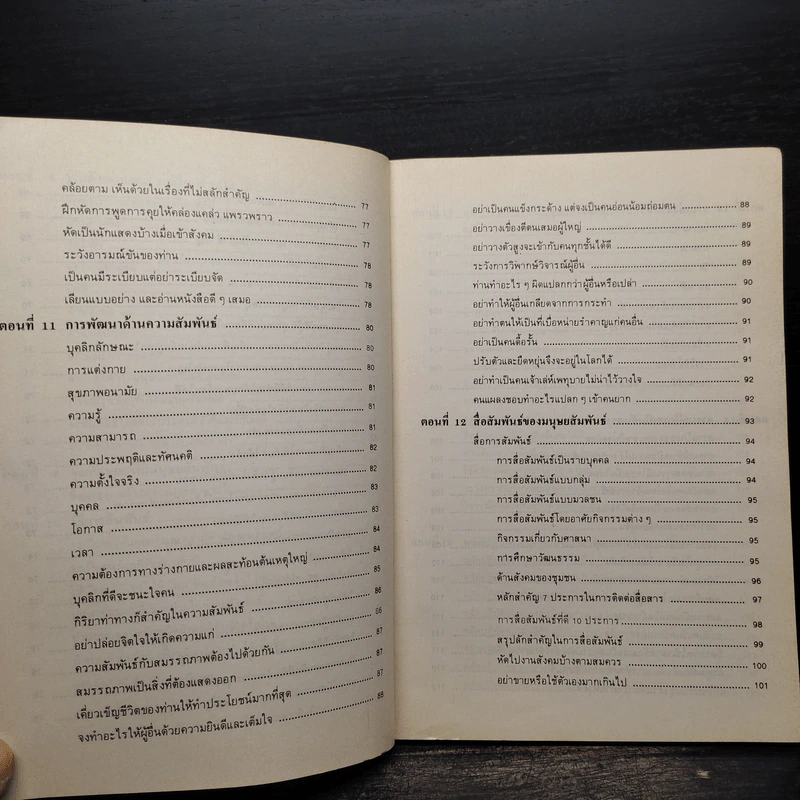 คล้อยตาม เห็นด้วยในเรื่องที่ไม่สลักสำคัญ ........ 77
ฝึกหัดการพูดการคุยให้คล่องแคล่ว แพรวพราว ........ 77
หัดเป็นนักแสดงบ้างเมื่อเข้าสังคม ........ 77
ระวังอารมณ์ขันของท่าน ........ 78
เป็นคนมีระเบียบแต่อย่าระเบียบจัด ........ 78
เลียนแบบอย่าง และอ่านหนังสือดี ๆ เสมอ ........ 78
ตอนที่ 11 การพัฒนาด้านความสัมพันธ์ ........ 80
บุคลิกลักษณะ ........ 80
การแต่งกาย ........ 80
สุขภาพอนามัย ........ 81
ความรู้ ........ 81
ความสามารถ ........ 81
ความประพฤติและทัศนคติ ........ 82
ความตั้งใจจริง ........ 82
บุคคล ........ 83
โอกาส ........ 83
เวลา ........ 84
ความต้องการทางร่างกายและผลสะท้อนต้นเหตุใหญ่ ........ 84
บุคลิกที่ดีจะชนะใจคน ........ 85
กิริยาท่าทางก็สำคัญในความสัมพันธ์ ........ 86
อย่าปล่อยจิตใจให้เกิดความแก่ ........ 86
ความสัมพันธ์กับสมรรถภาพต้องไปด้วยกัน ........ 87
สมรรถภาพเป็นสิ่งที่ต้องแสดงออก ........ 87
เคี่ยวเข็ญชีวิตของท่านให้ทำประโยชน์มากที่สุด ........ 87
จงทำอะไรให้ผู้อื่นด้วยความยินดีและเต็มใจ ........ 88
อย่าเป็นคนแข็งกระด้าง แต่จงเป็นคนอ่อนน้อมถ่อมตน ........ 88
อย่าวางเขื่องตีตนเสมอผู้ใหญ่ ........ 89
อย่าวางตัวสูงจะเข้ากับคนทุกชั้นได้ดี ........ 89
ระวังการวิพากษ์วิจารณ์ผู้อื่น ........ 89
ท่านทำอะไร ๆ ผิดแปลกกว่าผู้อื่นหรือเปล่า ........ 90
อย่าทำให้ผู้อื่นเกลียดจากการกระทำ ........ 90
อย่าทำตนให้เป็นที่เบื่อหน่ายรำคาญแก่คนอื่น ........ 91
อย่าเป็นคนดื้อรั้น ........ 91
ปรับตัวและยืดหยุ่นจึงจะอยู่ในโลกได้ ........ 91
อย่าทำเป็นคนเจ้าเล่ห์เพทุบายไม่น่าไว้วางใจ ........ 92
คนแผลงชอบทำอะไรแปลก ๆ เข้าคนยาก ........ 92
ตอนที่ 12 สื่อสัมพันธ์ของมนุษยสัมพันธ์ ........ 93
สื่อการสัมพันธ์ ........ 94
การสื่อสัมพันธ์เป็นรายบุคคล ........ 94
การสื่อสัมพันธ์แบบกลุ่ม ........ 94
การสื่อสัมพันธ์แบบมวลชน ........ 95
การสื่อสัมพันธ์โดยอาศัยกิจกรรมต่าง ๆ ........ 95
กิจกรรมเกี่ยวกับศาสนา ........ 95
การศึกษาวัฒนธรรม ........ 95
ด้านสังคมของชุมชน ........ 96
หลักสำคัญ 7 ประการในการติดต่อสื่อสาร ........ 97
การสื่อสัมพันธ์ที่ดี 10 ประการ ........ 98
สรุปลักสำคัญในการสื่อสัมพันธ์ ........ 99
หัดไปงานสังคมบ้างตามสมควร ........ 100
อย่าขายหรือใช้ตัวเองมากเกินไป ........ 101